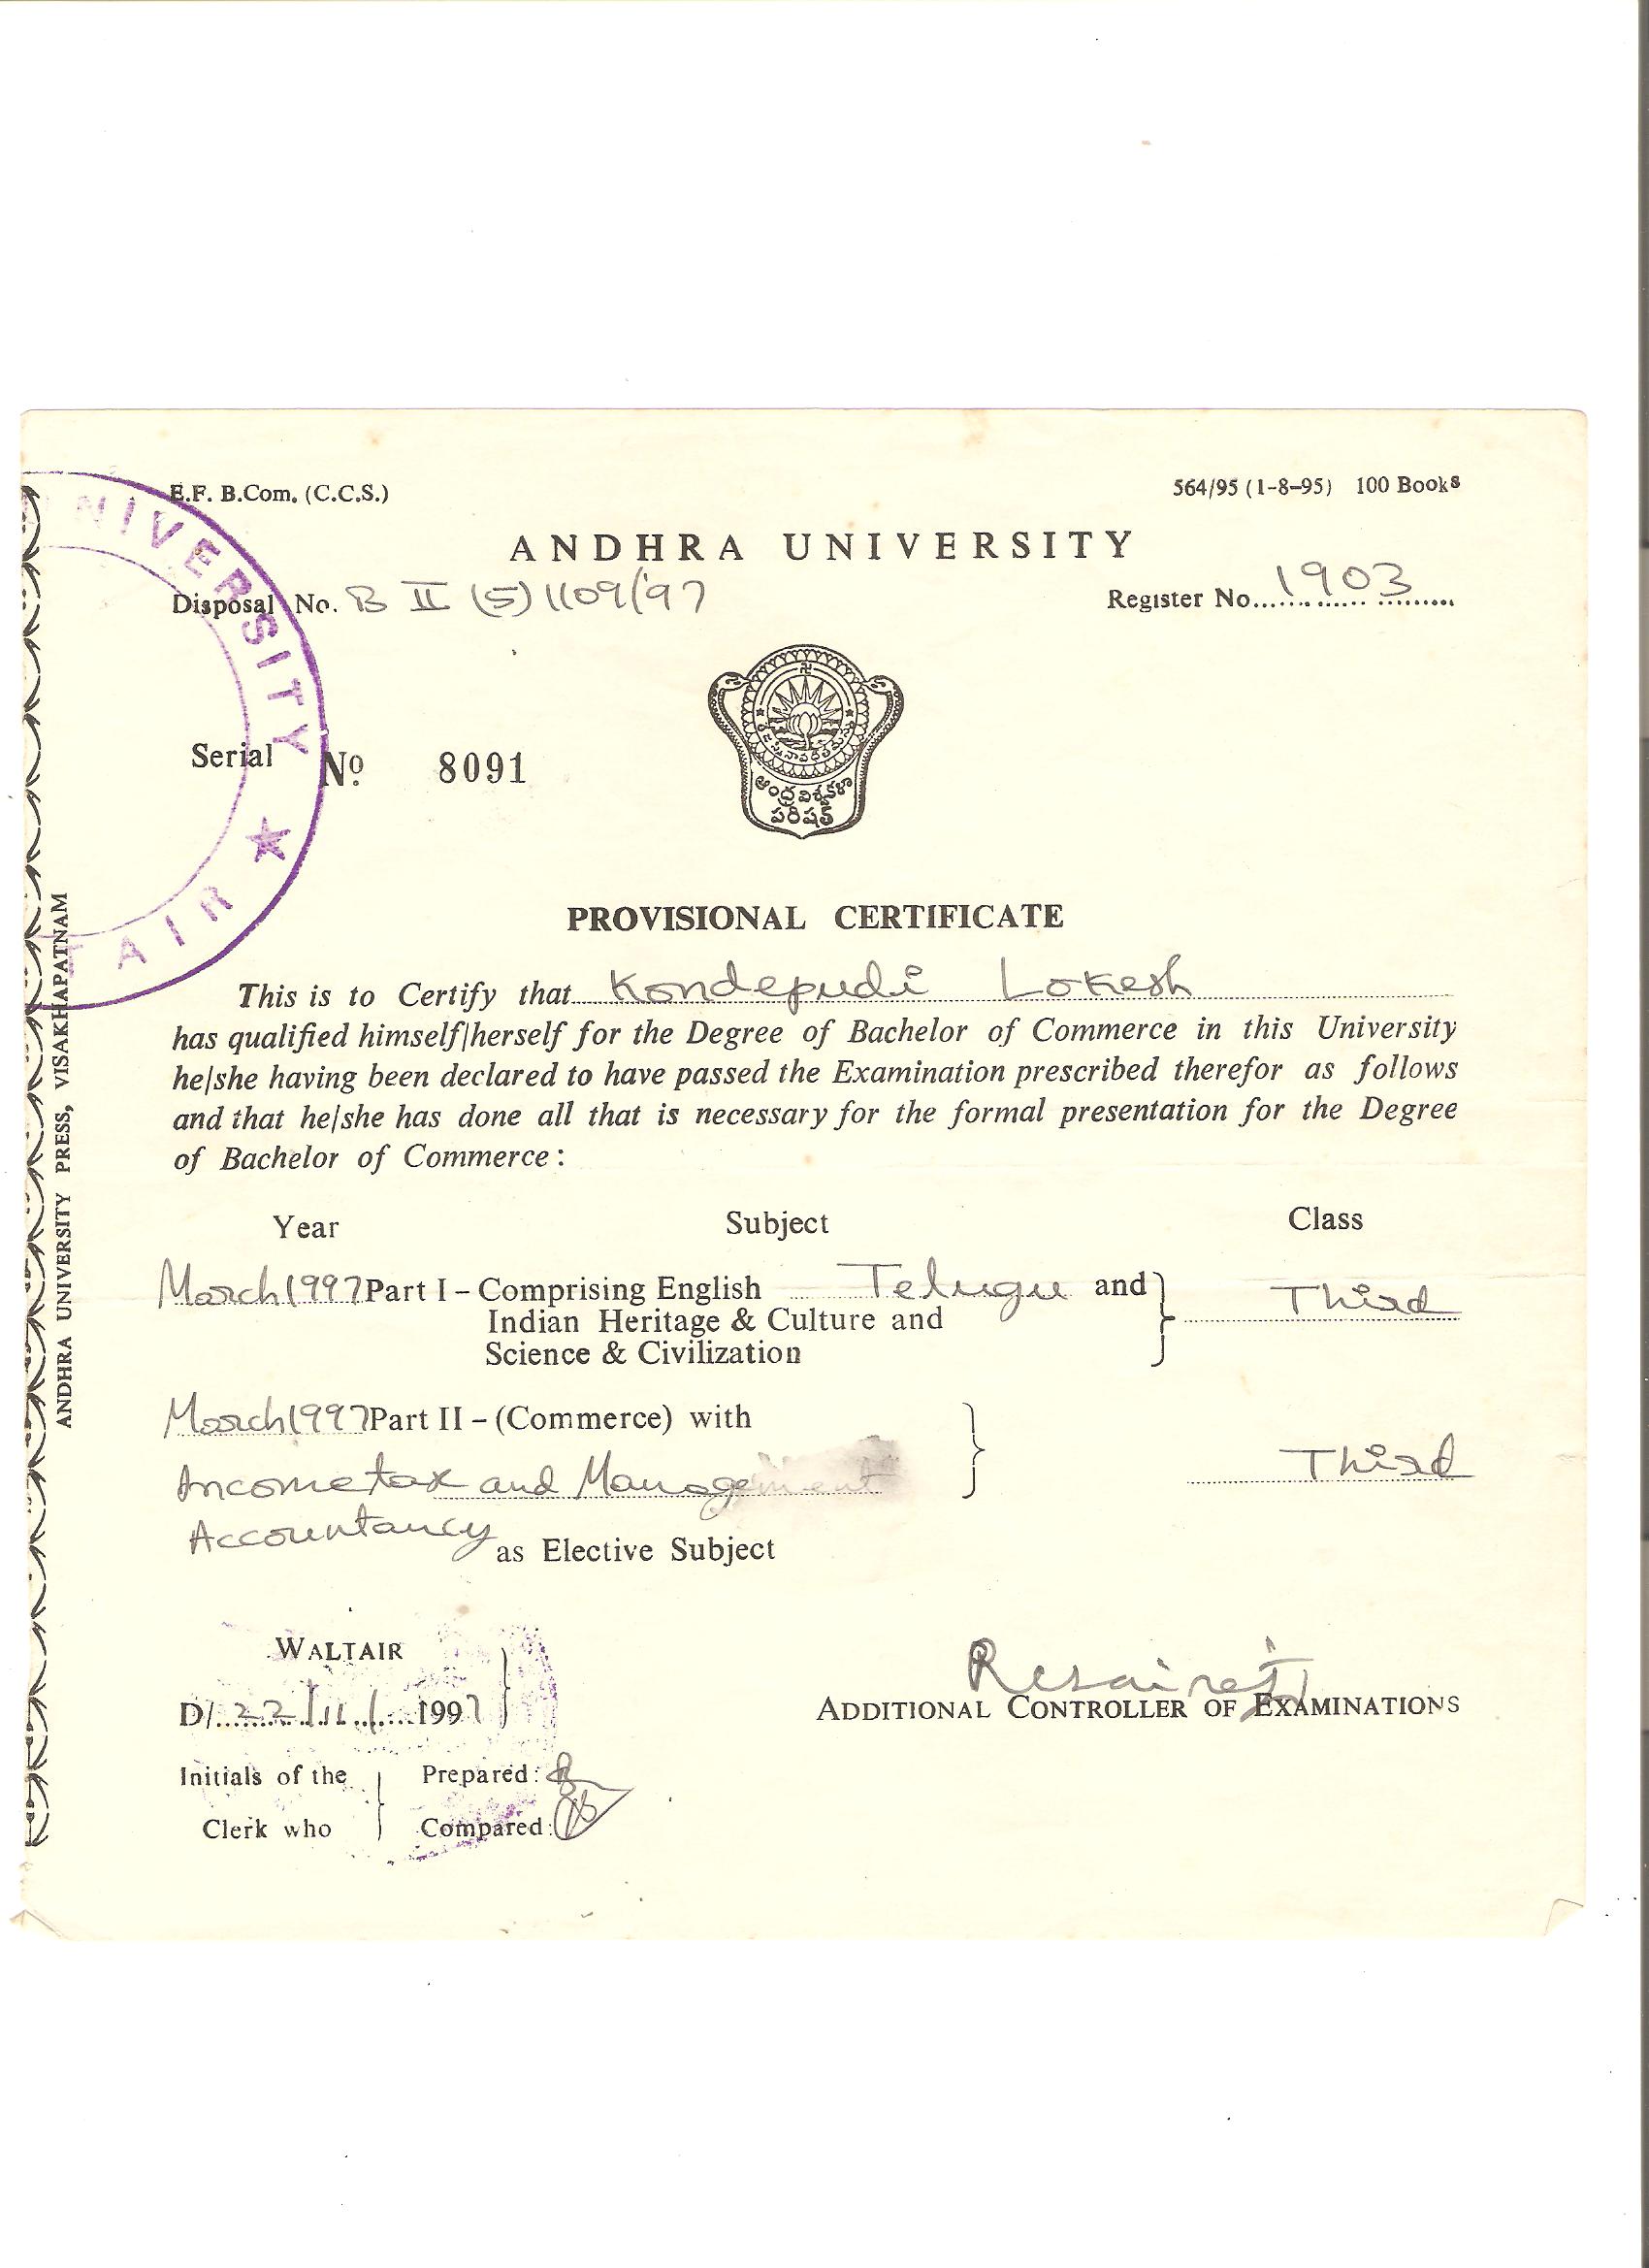 E.F. B.Com. (C.C.S.) 564/95 (1-8-95) 100 Books
ANDHRA UNIVERSITY
Disposal No. B II (5) 1109/97 Register No. 1903
Serial No 8091
ఆంధ్ర విశ్వకళా
పరిషత్
PROVISIONAL CERTIFICATE
This is to Certify that Kondepudi Lokesh
has qualified himself|herself for the Degree of Bachelor of Commerce in this University
he|she having been declared to have passed the Examination prescribed therefor as follows
and that he|she has done all that is necessary for the formal presentation for the Degree
of Bachelor of Commerce :
Year Subject Class
March 1997 Part I – Comprising English Telugu and Third
Indian Heritage & Culture and
Science & Civilization
March 1997 Part II – (Commerce) with
Incometax and Management Third
Accountancy as Elective Subject
WALTAIR
D/. 22/11/ 1997
ADDITIONAL CONTROLLER OF EXAMINATIONS
Initials of the Prepared:
Clerk who Compared:
ANDHRA UNIVERSITY PRESS, VISAKHAPATNAM
UNIVERSITY ★ TAIR